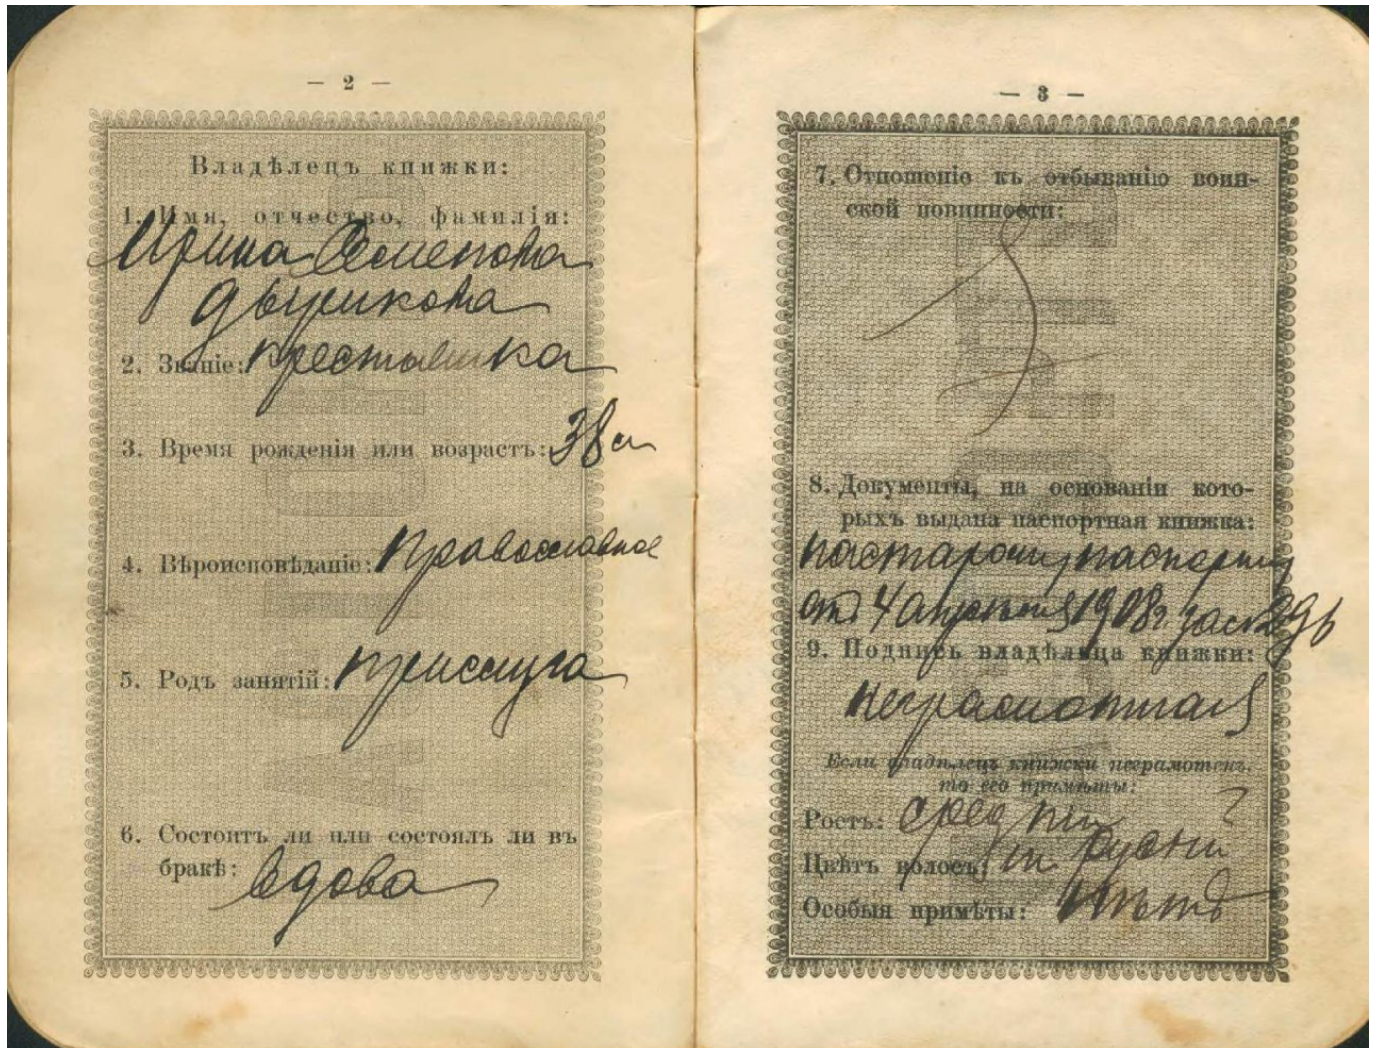 — 2 —
Владѣлецъ книжки:
1. Имя, отчество, фамилія:
Ирина Семенова
Дырикова
2. Званіе: крестьянка
3. Время рожденія или возрастъ: 38 л
4. Вѣроисповѣданіе: православное
5. Родъ занятій: прислуга
6. Состоитъ ли или состоялъ ли въ
бракѣ: вдова
— 3 —
7. Отношеніе къ отбыванію воин-
ской повинности:
8. Документы, на основаніи кото-
рыхъ выдана паспортная книжка:
паспорту
от 4 апрѣля 1908 г. за
9. Подпись владѣльца книжки:
неграмотная
Если владѣлецъ книжки неграмотенъ,
то его примѣты:
Ростъ: средній
Цвѣтъ волосъ: русый
Особыя примѣты: нѣтъ